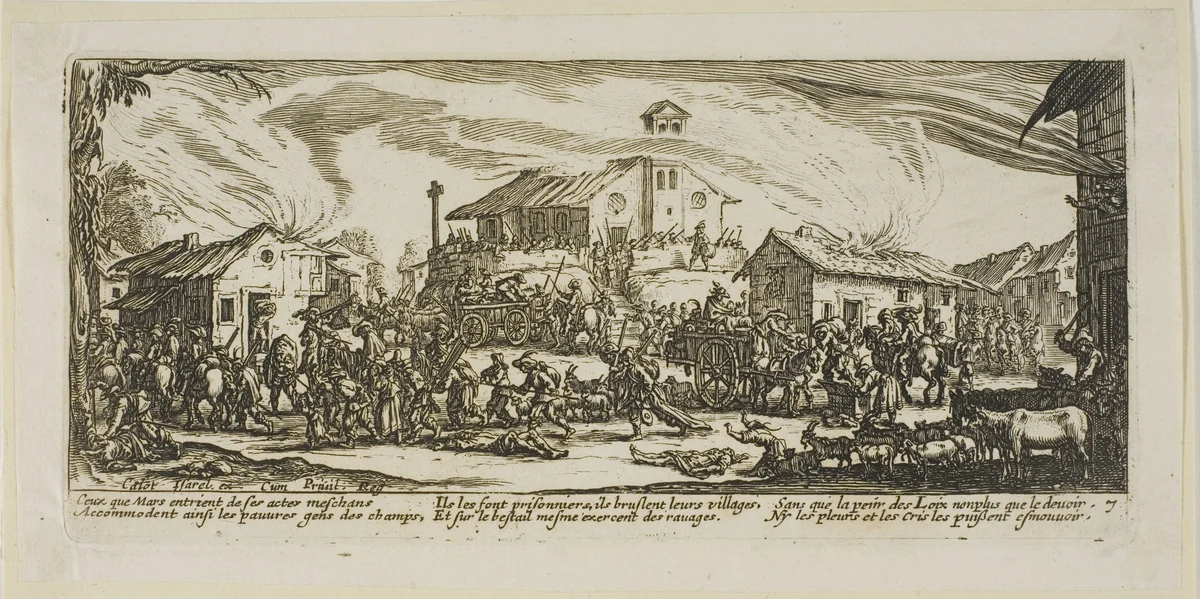 Calot Isarel. ex Cum Priuil. Reg
Ceux que Mars entrient de ses actes meschans
Accommodent ainsi les pauures gens des champs,
Ils les font prisonniers, ils bruslent leurs villages,
Et sur le bestail mesme exercent des rauages.
Sans que la peur des Loix nonplus que le deuoir.
Ny les pleurs et les Cris les puissent esmouuoir.
7